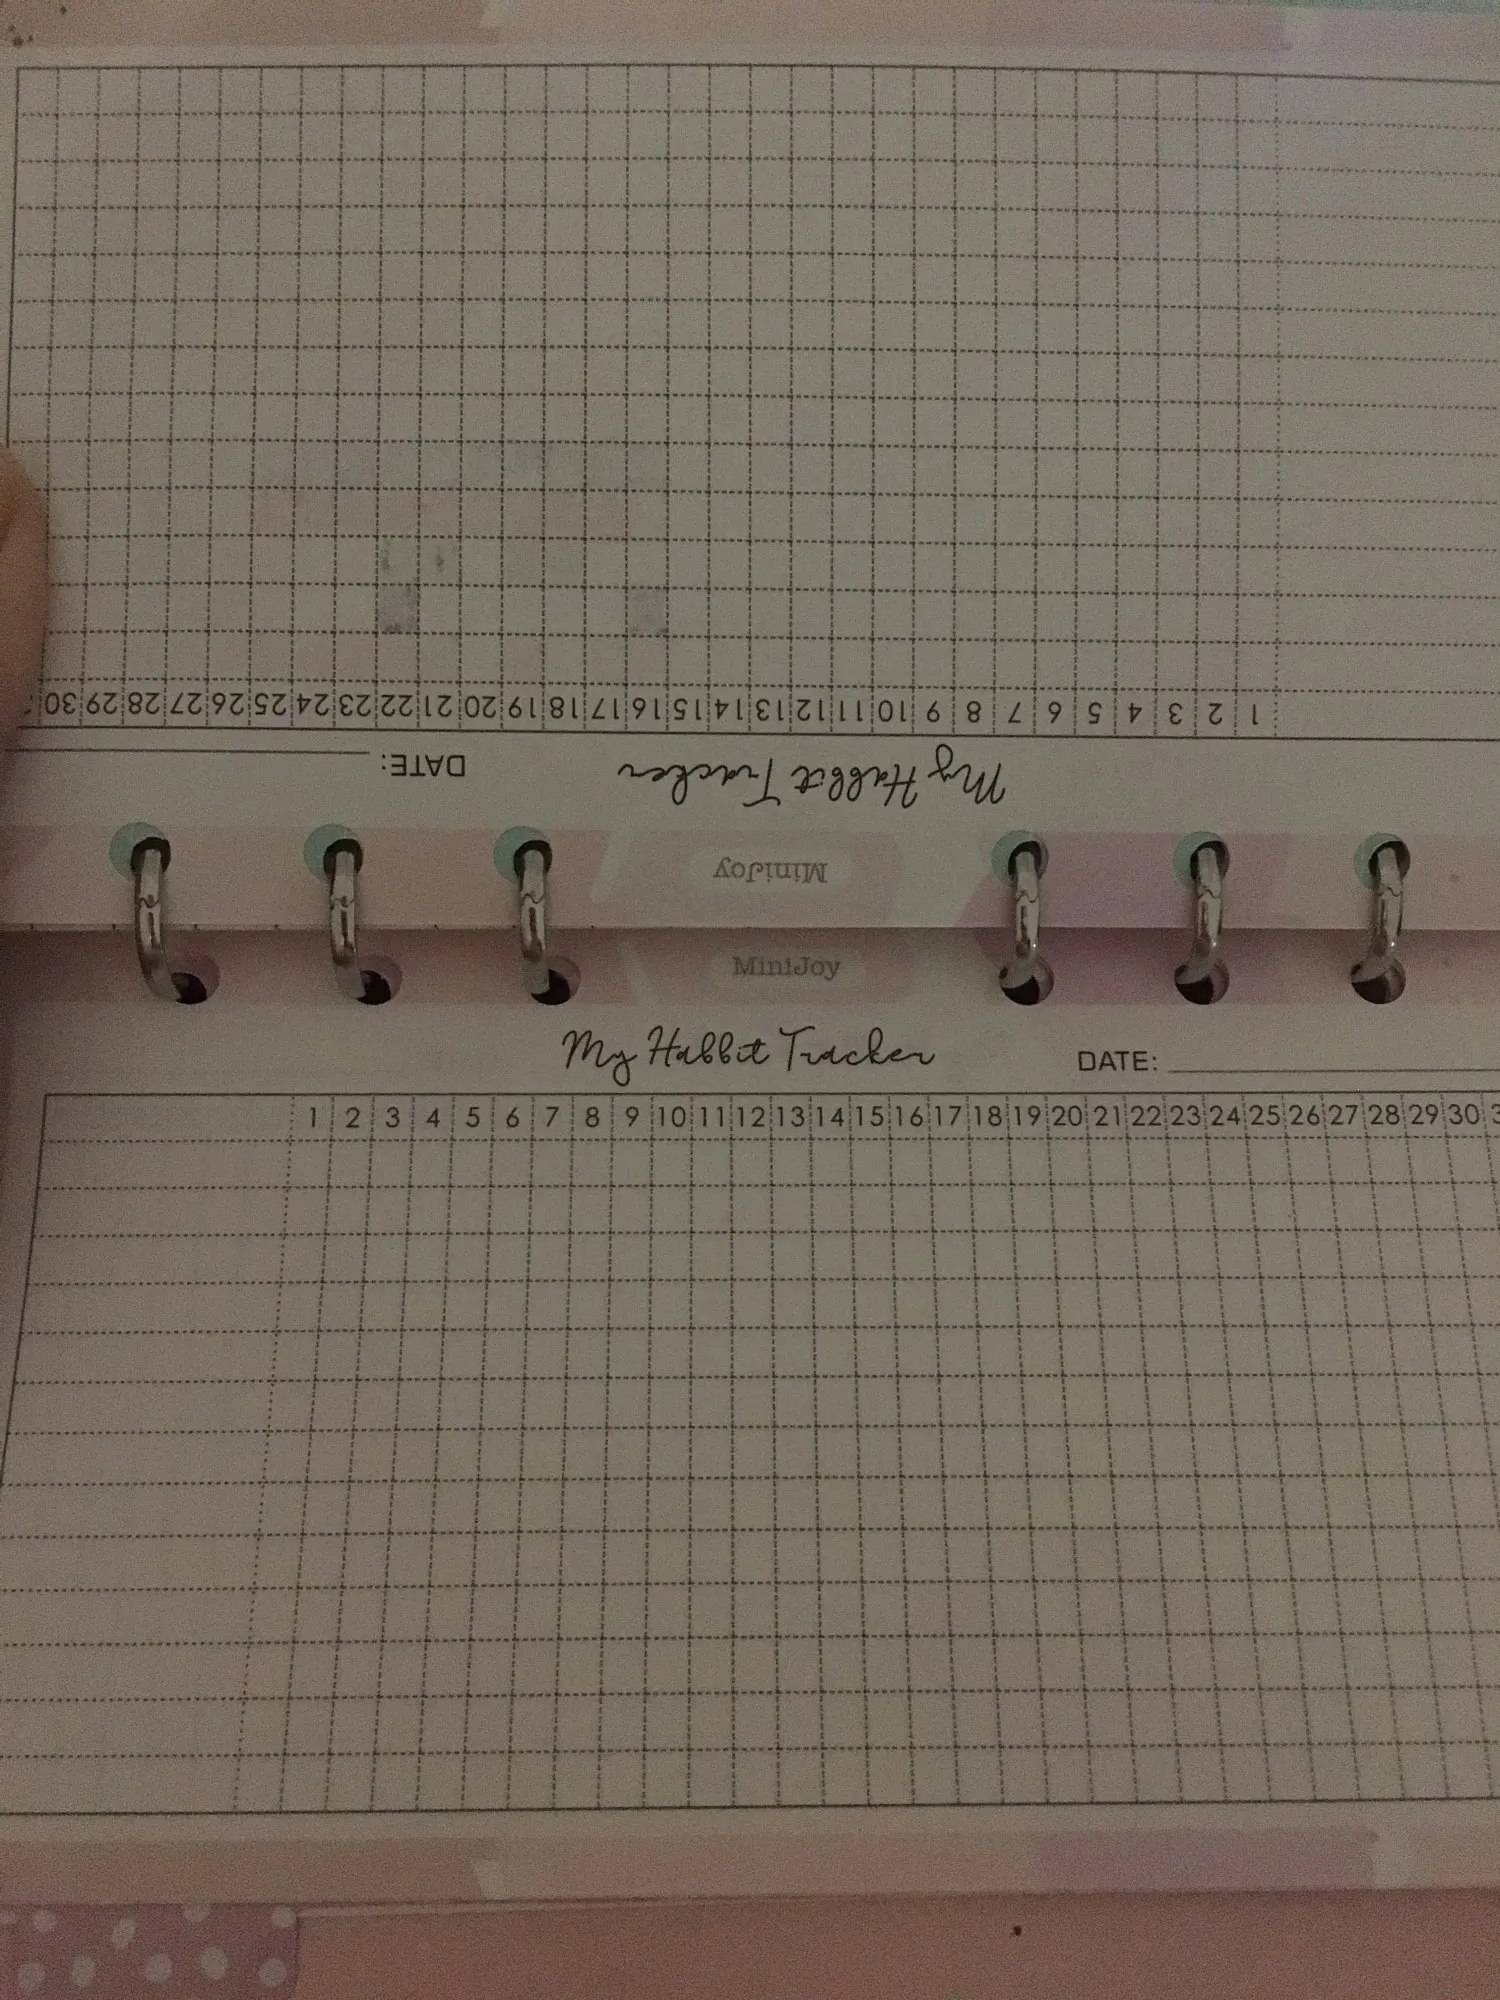 1 2 3 4 5 6 7 8 9 10 11 12 13 14 15 16 17 18 19 20 21 22 23 24 25 26 27 28 29 30
My Habbit Tracker DATE:
MiniJoy
MiniJoy
My Habbit Tracker DATE:
1 2 3 4 5 6 7 8 9 10 11 12 13 14 15 16 17 18 19 20 21 22 23 24 25 26 27 28 29 30